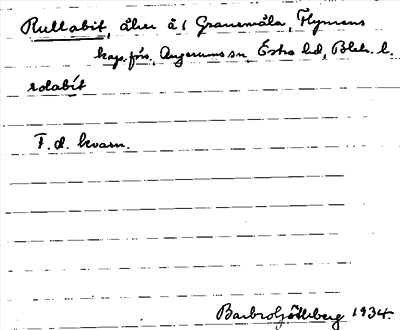 Rullabit, åker å 1 Granemåla, Flymens
kap.förs. Augerums sn Östra hd, Blek. l.
rolabit
F. d. kvarn.
Barbro Göthberg 1934.